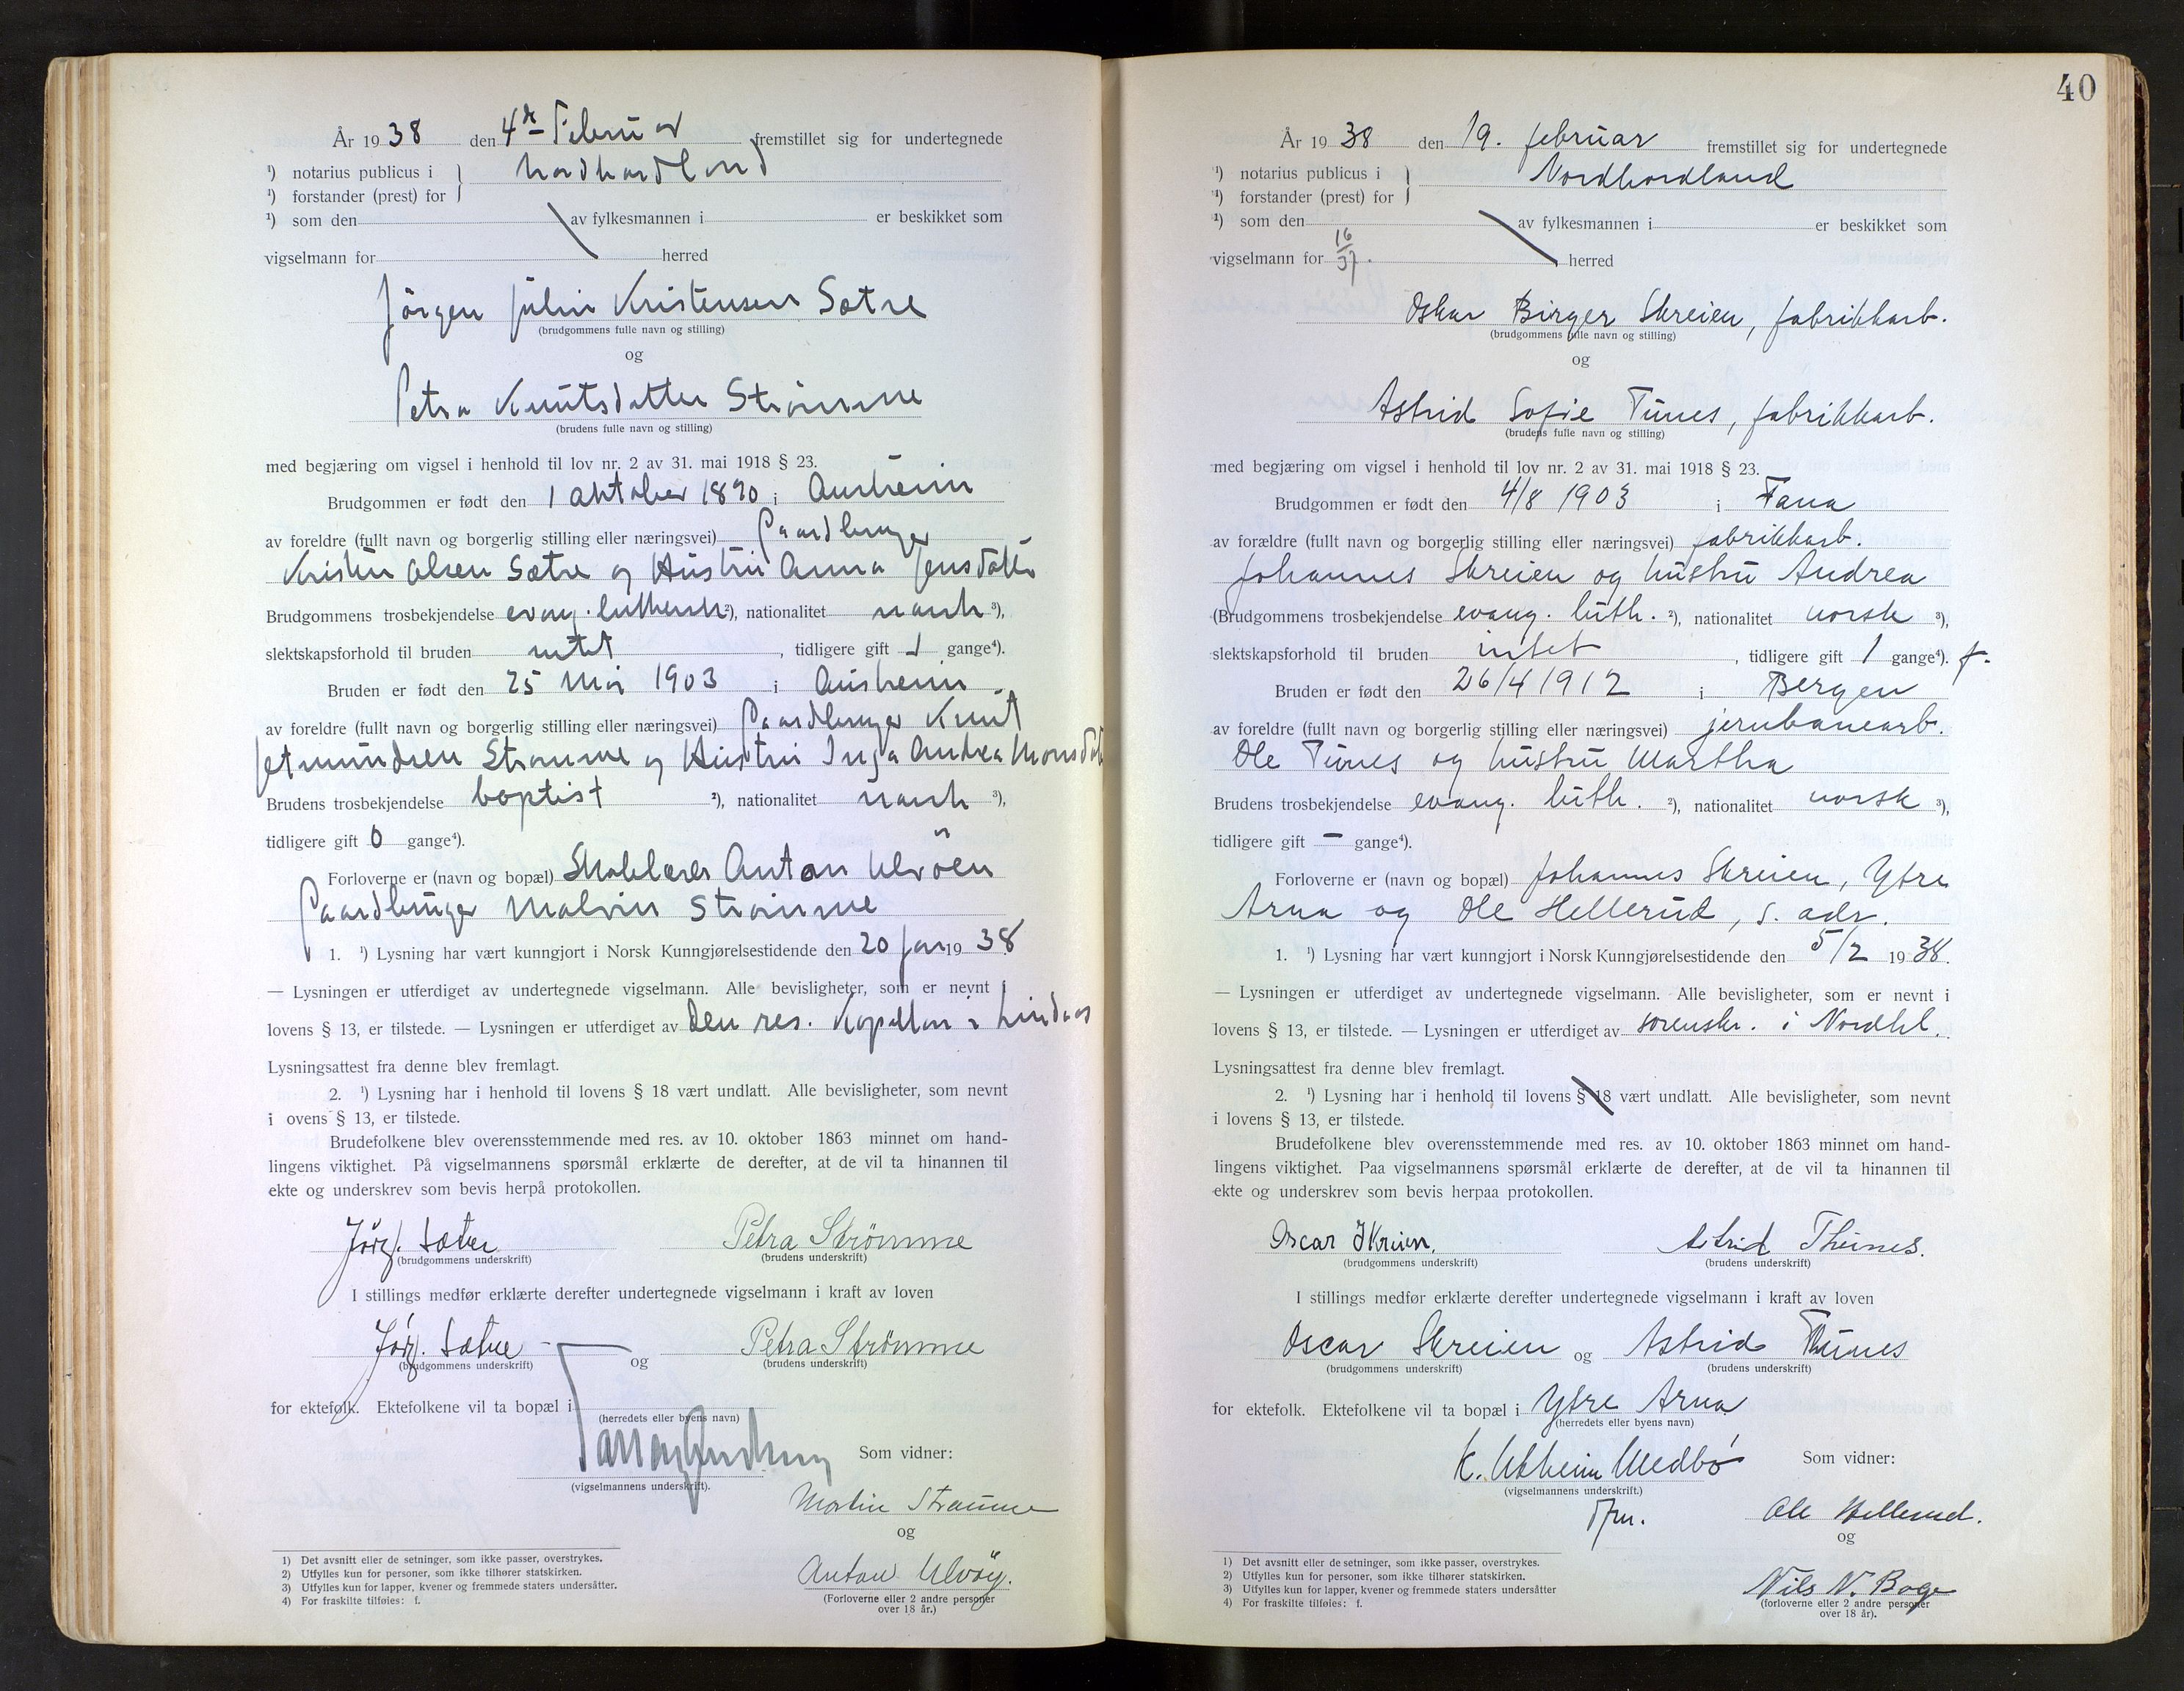 År 1938 den 4de Februar fremstillet sig for undertegnede
¹) notarius publicus i } Nordhordland
¹) forstander (prest) for
¹) som den av fylkesmannen i er beskikket som
vigselmann for herred
Jörgen Julin Kristensen Sætre
(brudgommens fulle navn og stilling)
og
Petra Knutsdatter Strömme
(brudens fulle navn og stilling)
med begjæring om vigsel i henhold til lov nr. 2 av 31. mai 1918 § 23.
Brudgommen er født den 1 oktober 1890 i Austrheim
av foreldre (fullt navn og borgerlig stilling eller næringsvei) Gaardbruger
Kristen Olsen Sætre og Hustru Anna Jensdatter
Brudgommens trosbekjendelse evang. luthersk ²), nationalitet norsk ³),
slektskapsforhold til bruden intet , tidligere gift 1 gange⁴).
Bruden er født den 25 Mai 1903 i Austrheim
av foreldre (fullt navn og borgerlig stilling eller næringsvei) Gaardbruger Knut
Jetmundsen Strömme og Hustru Inga Andrea Monsdatter
Brudens trosbekjendelse baptist ²), nationalitet norsk ³),
tidligere gift 0 gange⁴).
Forloverne er (navn og bopæl) Skolelærer Anton Ulvöen
Gaardbruger Malvin Strömme
1. ¹) Lysning har vært kunngjort i Norsk Kunngjørelsestidende den 20 Jan 1938
— Lysningen er utferdiget av undertegnede vigselmann. Alle bevisligheter, som er nevnt i
lovens § 13, er tilstede. — Lysningen er utferdiget av den res. Kapellan i Lindaas
Lysningsattest fra denne blev fremlagt.
2. ¹) Lysning har i henhold til lovens § 18 vært undlatt. Alle bevisligheter, som nevnt
i ovens § 13, er tilstede.
Brudefolkene blev overensstemmende med res. av 10. oktober 1863 minnet om hand-
lingens viktighet. På vigselmannens spørsmål erklærte de derefter, at de vil ta hinannen til
ekte og underskrev som bevis herpå protokollen.
Jörg. Sætre Petra Strömme
(brudgommens underskrift) (brudens underskrift)
I stillings medfør erklærte derefter undertegnede vigselmann i kraft av loven
Jörg. Sætre og Petra Strömme
(brudgommens underskrift) (brudens underskrift)
for ektefolk. Ektefolkene vil ta bopæl i
(herredets eller byens navn)
Som vidner:
(vigselmannens underskrift).
Martin Straume
og
Anton Ulvöy.
(Forloverne eller 2 andre personer
over 18 år.)
1) Det avsnitt eller de setninger, som ikke passer, overstrykes.
2) Utfylles kun for personer, som ikke tilhører statskirken.
3) Utfylles kun for lapper, kvener og fremmede staters undersåtter.
4) For fraskilte tilføies: f.
40
År 1938 den 19. februar fremstillet sig for undertegnede
¹) notarius publicus i } Nordhordland
¹) forstander (prest) for
¹) som den av fylkesmannen i er beskikket som
vigselmann for 16/37. herred
Oskar Birger Skreien, fabrikkarb.
(brudgommens fulle navn og stilling)
og
Astrid Sofie Tunes, fabrikkarb.
(brudens fulle navn og stilling)
med begjæring om vigsel i henhold til lov nr. 2 av 31. mai 1918 § 23.
Brudgommen er født den 4/8 1903 i Fana
av forældre (fullt navn og borgerlig stilling eller næringsvei) fabrikkarb.
Johannes Skreien og hustru Andrea
(Brudgommens trosbekjendelse evang. luth. ²), nationalitet norsk ³),
slektskapsforhold til bruden intet , tidligere gift 1 gange⁴). f.
Bruden er født den 26/4 1912 i Bergen
av foreldre (fullt navn og borgerlig stilling eller næringsvei) jernbanearb.
Ole Tunes og hustru Martha
Brudens trosbekjendelse evang. luth. ²), nationalitet norsk ³),
tidligere gift — gange⁴).
Forloverne er (navn og bopæl) Johannes Skreien, Ytre
Arna og Ole Hellerud, s. adr.
1. ¹) Lysning har vært kunngjort i Norsk Kunngjørelsestidende den 5/2 1938.
— Lysningen er utferdiget av undertegnede vigselmann. Alle bevisligheter, som er nevnt i
lovens § 13, er tilstede. — Lysningen er utferdiget av sorenskr. i Nordhl.
Lysningsattest fra denne blev fremlagt.
2. ¹) Lysning har i henhold til lovens § 18 vært undlatt. Alle bevisligheter, som nevnt
i lovens § 13, er tilstede.
Brudefolkene blev overensstemmende med res. av 10. oktober 1863 minnet om hand-
lingens viktighet. Paa vigselmannens spørsmål erklærte de derefter, at de vil ta hinannen til
ekte og underskrev som bevis herpaa protokollen.
Oscar Skreien. Astrid Thunes.
(brudgommens underskrift) (brudens underskrift)
I stillings medfør erklærte derefter undertegnede vigselmann i kraft av loven
Oscar Skreien og Astrid Thunes
(brudgommens underskrift) (brudens underskrift)
for ektefolk. Ektefolkene vil ta bopæl i Ytre Arna
(herredets eller byens navn)
K. Utheim Medbö Som vidner:
(vigselmannens underskrift.)
Ole Hellerud.
og
Nils N. Boge
(forloverne eller 2 andre personer
over 18 år).
1) Det avsnitt eller de setninger, som ikke passer, overstrykes.
2) Utfylles kun for personer, som ikke tilhører statskirken.
3) Utfylles kun for lapper, kvener og fremmede staters undersåtter
4) For fraskilte tilføies: f.